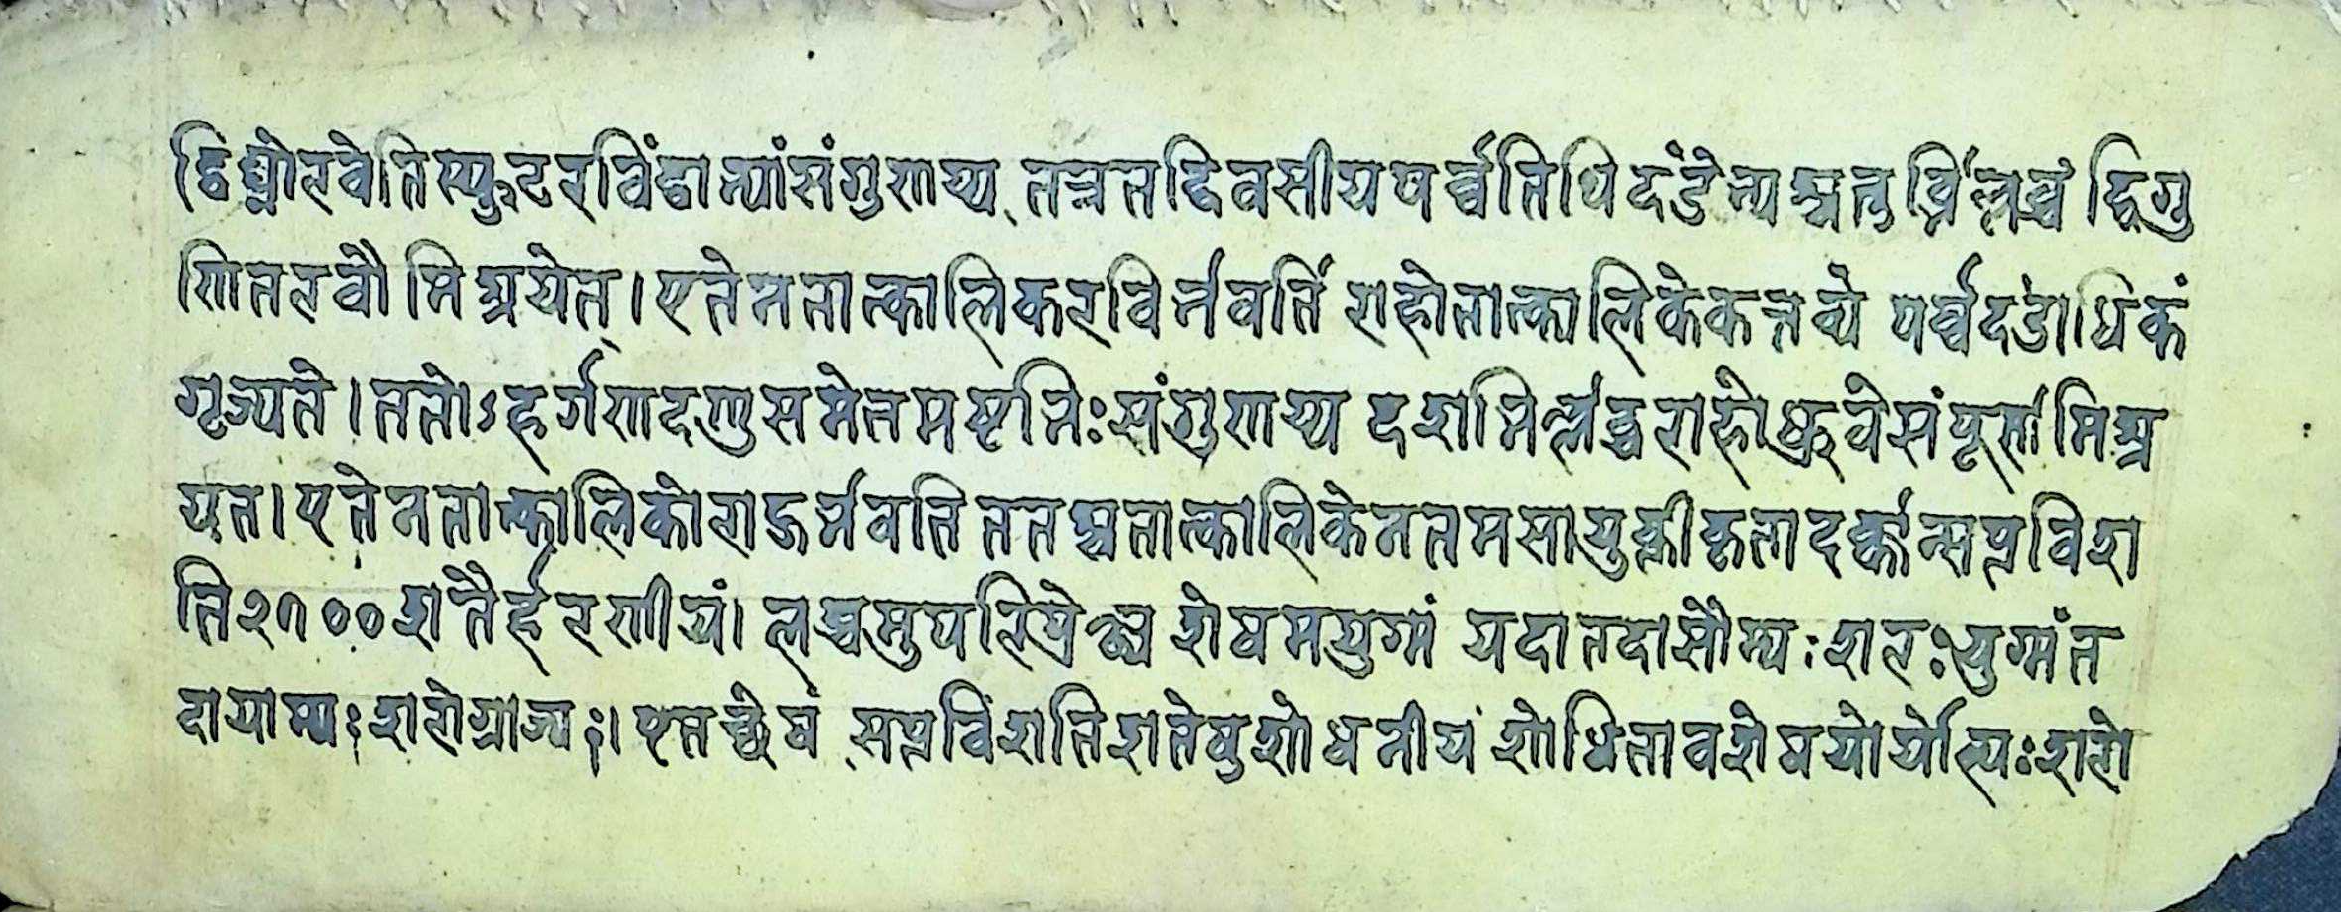 द्विघ्नोरवेतिस्फुटरविंद्वाभ्यांसंगुणय्य तत्रतद्दिवसीयपर्व्वतिथिदंडेभ्यश्चतुर्भिर्लब्धं द्विगु
णितरवौ मिश्रयेत्। एतेनतात्कालिकरविर्भवति राहोतात्कालिकेकर्त्तव्ये पर्व्वदंडाधिकं
गृज्यते। ततोऽहर्गणादणुसमेतमष्टभिःसंगुणय्य दशभिर्लब्धराहोध्रुवेसंपूर्णमिश्र
येत। एतेनतात्कालिकोराहुर्भवति ततश्चतात्कालिकेनतमसायुक्तीकृतादर्क्कात्सप्तविंश
ति२७००शतैर्हरणीयं। लब्धमुपरिप्रेक्ष्य शेषमयुग्मं यदातदासौम्यःशरःयुग्मंत
दायाम्यःशरोग्राज्यः। एतच्छेषं सप्तविंशतिशतेषुशोधनीयं शोधितावशेषयोर्योल्पःशरो